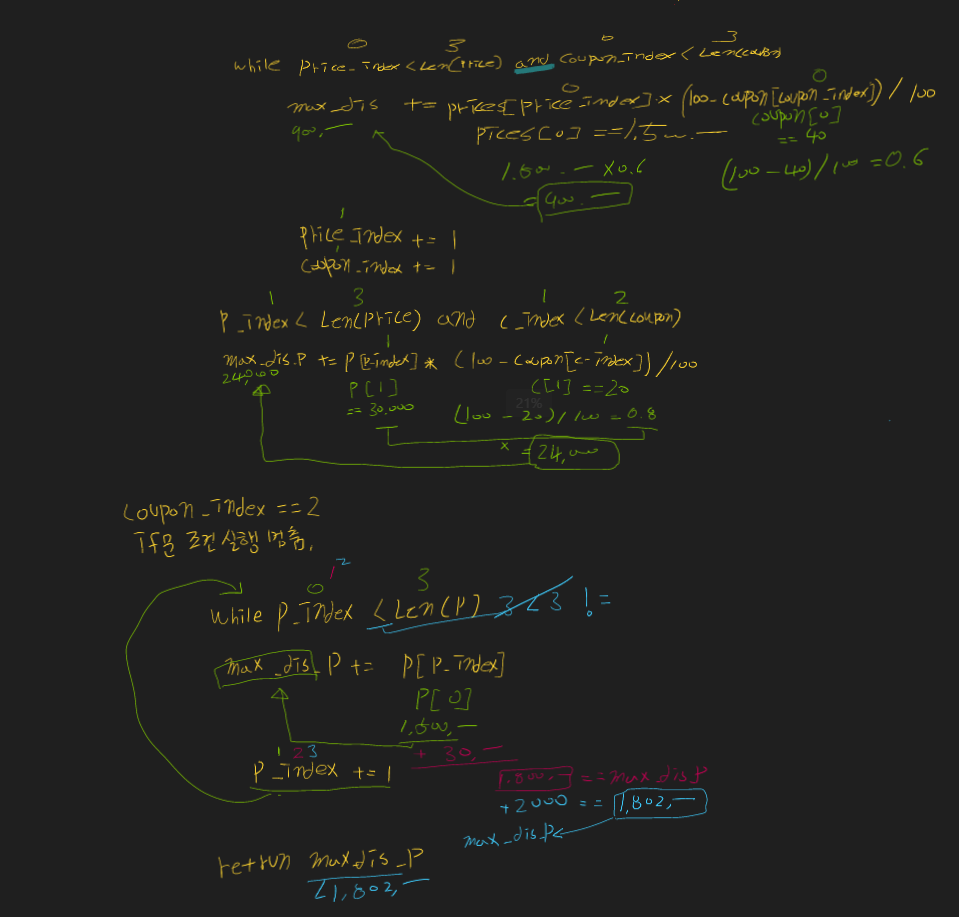 0 3 0 3
while price_index < Len(price) and coupon_index < Len(coupon)
0 0
max_dis += prices[price_index] × (100-coupon[coupon_index]) / 100
900,一 prices[0] == 1,500.一 coupon[0]
== 40
1.500.一 ×0.6 (100-40)/100 =0.6
= 900.一
1
price_index += 1
1
coupon_index += 1
1 3 1 2
P_index < Len(price) and c_index < Len(coupon)
1 1
max_dis_P += P[p-index] * (100-coupon[c-index])/100
24,000
P[1] C[1] ==20
== 30,000 21%
(100 - 20)/100 = 0.8
× = 24,000
coupon_index ==2
if문 조건 실행 멈춤.
0 1 2 3
while P_index < Len(P) 3<3 !=
max_dis_P += P[P_index]
P[0]
1,500,一
1 2 3 + 30,一
P_index += 1
1.800.一 == max_dis_P
+2000 == 1,802,一
max_dis_P
retrun max_dis_P
1,802,一